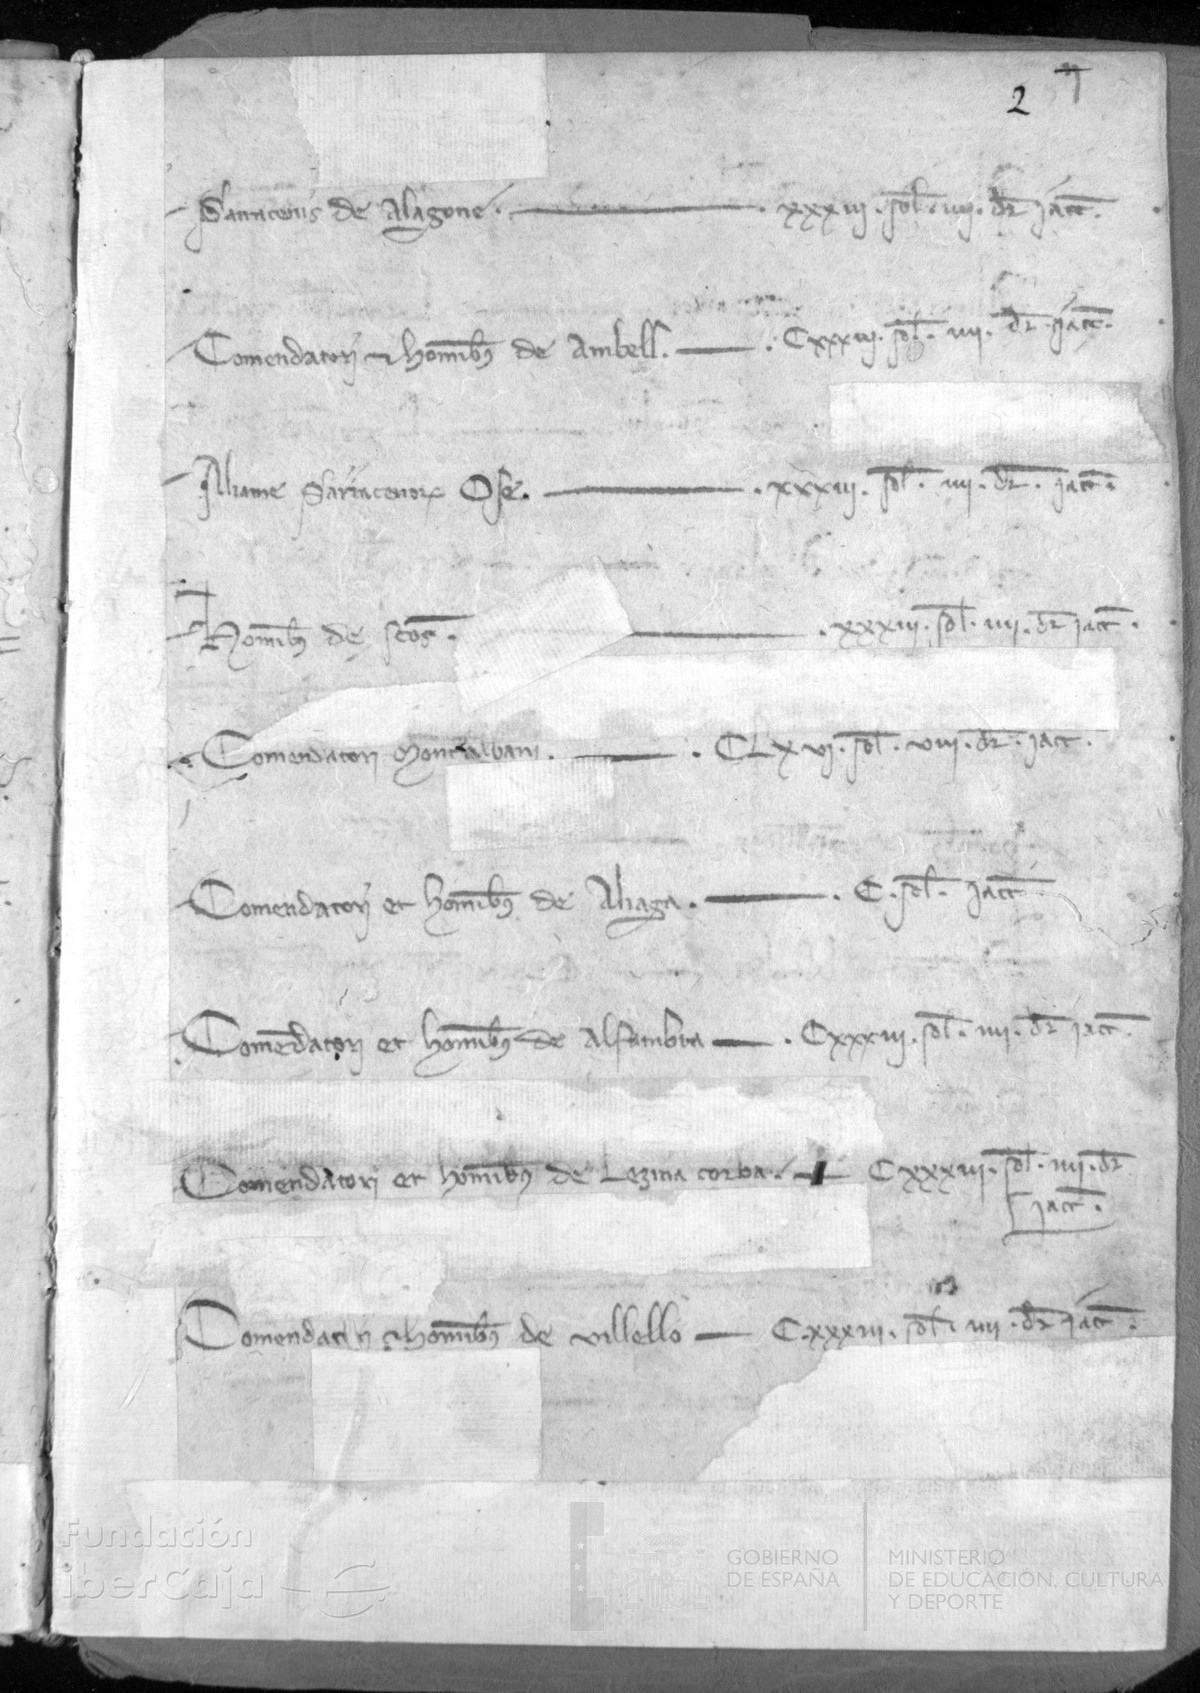 2
Sarracenis de Alagone. xxxiii. sol. iiii. dr iacc.
Comendatori et hominibꝫ de Ambell. Cxxxiii. sol. iiii. dr. iacc.
Aliame Sarracenorꝝ Osce. xxxiii. sol. iiii. dr. iacc.
Hominibꝫ de scos. xxxiii. sol. iiii. dr iacc.
Comendatori Montalbani. CLxvi. sol. viii. dr. iacc.
Comendatori et hominibꝫ de Aliaga. C. sol. iacc.
Comendatori et hominibꝫ de Alfambra Cxxxiii. sol. iiii. dr iacc.
Comendatori et hominibꝫ de Lezina corba. Cxxxiii. sol. iiii. dr
iacc.
Comendatori et hominibꝫ de villello C.xxxiii. sol. iiii. dr iacc.
Fundación
iberCaja
GOBIERNO
DE ESPAÑA
MINISTERIO
DE EDUCACIÓN, CULTURA
Y DEPORTE